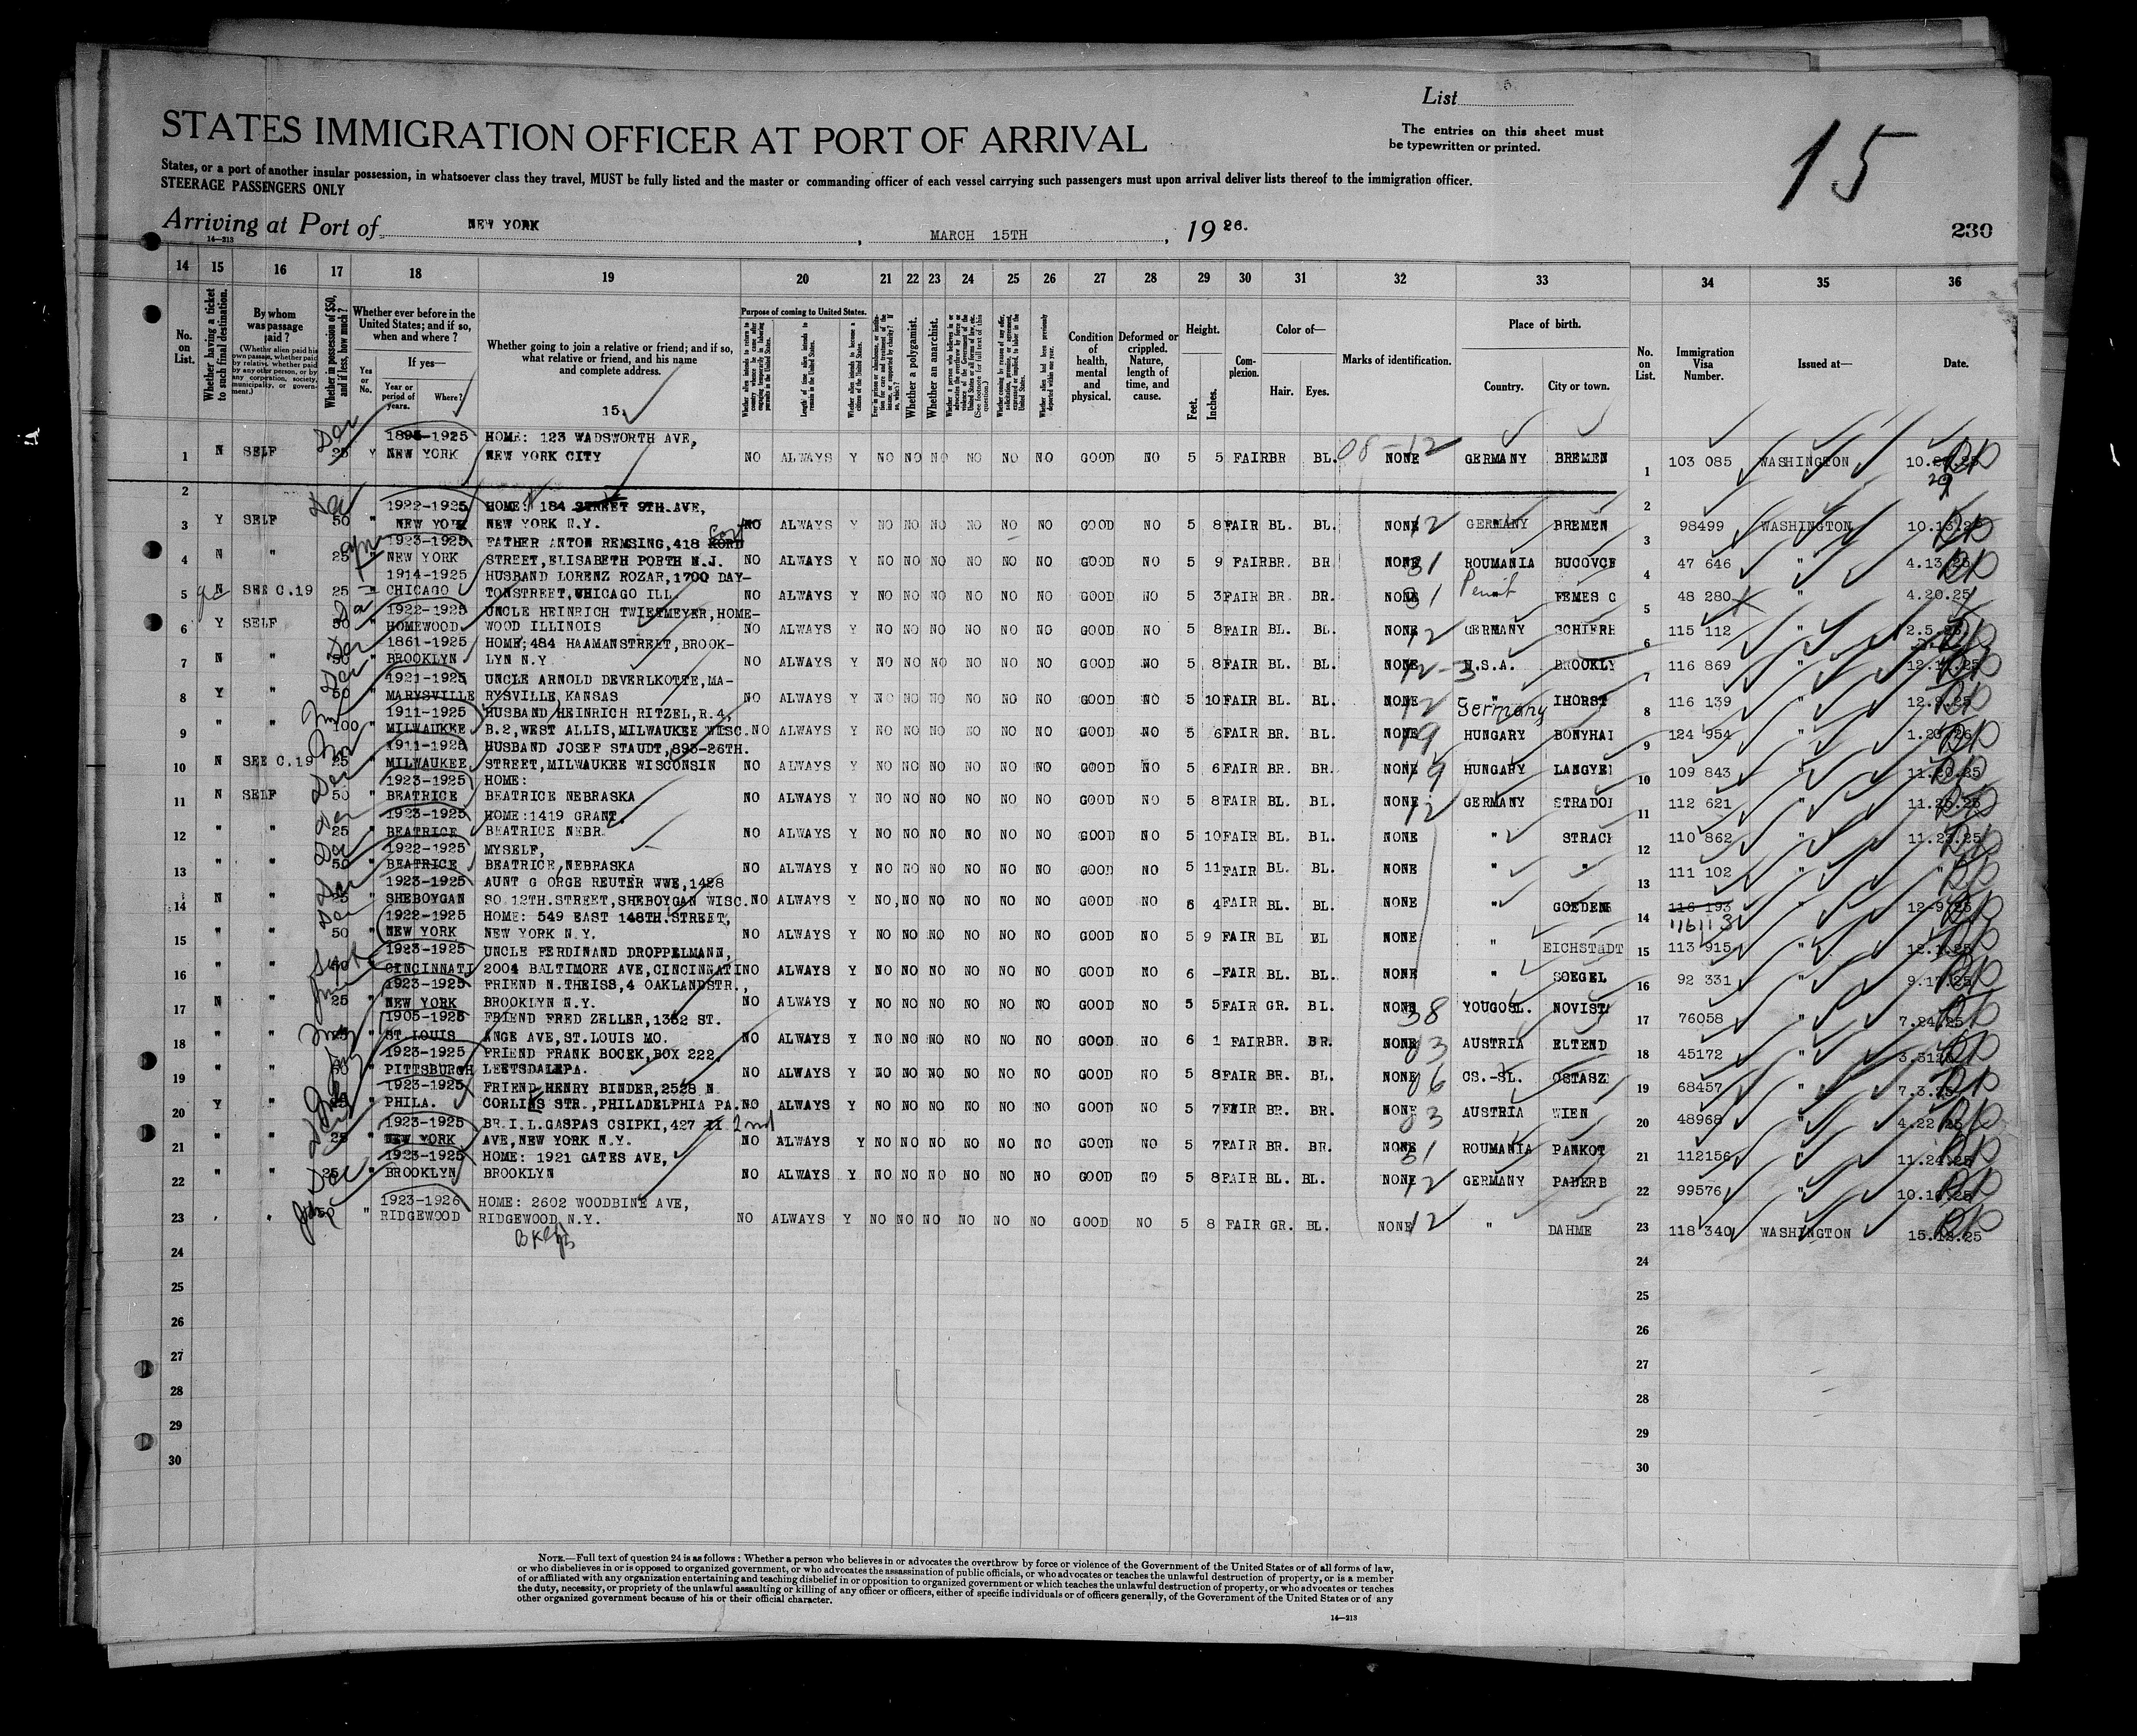 List
STATES IMMIGRATION OFFICER AT PORT OF ARRIVAL
The entries on this sheet must
be typewritten or printed.
15
States, or a port of another insular possession, in whatsoever class they travel, MUST be fully listed and the master or commanding officer of each vessel carrying such passengers must upon arrival deliver lists thereof to the immigration officer.
STEERAGE PASSENGERS ONLY
Arriving at Port of NEW YORK, MARCH 15TH, 1926.
230
14—213
14 15 16 17 18 19 20 21 22 23 24 25 26 27 28 29 30 31 32 33 34 35 36
No. on List.
Whether having a ticket to such final destination.
By whom was passage paid?
(Whether alien paid his own passage, whether paid by relative, whether paid by any other person, or by any corporation, society, municipality, or government.)
Whether in possession of $50, and if less, how much?
Whether ever before in the United States; and if so, when and where?
Yes or No.
If yes—
Year or period of years.
Where?
Whether going to join a relative or friend; and if so, what relative or friend, and his name and complete address.
15.
Purpose of coming to United States.
Length of time alien intends to remain in the United States.
Whether alien intends to become a citizen of the United States.
Whether a polygamist.
Whether an anarchist.
Condition of health, mental and physical.
Deformed or crippled. Nature, length of time, and cause.
Height.
Feet. Inches.
Complexion.
Color of—
Hair. Eyes.
Marks of identification.
Place of birth.
Country. City or town.
No. on List.
Immigration Visa Number.
Issued at—
Date.
1895-1925 HOME: 123 WADSWORTH AVE,
1 N SELF 25 Y NEW YORK NEW YORK CITY NO ALWAYS Y NO NO NO NO NO NO GOOD NO 5 5 FAIR BR BL. NONE GERMANY BREMEN 1 103 085 WASHINGTON
2 2
1922-1925 HOME: 184 STREET 9TH.AVE,
3 Y SELF 50 " NEW YORK NEW YORK N.Y. NO ALWAYS Y NO NO NO NO NO NO GOOD NO 5 8 FAIR BL. BL. NONE 12 GERMANY BREMEN 3 98499 WASHINGTON 10.13.25
1923-1925 FATHER ANTON REMSING,418 KORD
4 N " 25 " NEW YORK STREET,ELISABETH PORTH N.J. NO ALWAYS Y NO NO NO NO NO NO GOOD NO 5 9 FAIR BR. BR NONE 31 ROUMANIA BUCOVCE 4 47 646 " 4.13.25
1914-1925 HUSBAND LORENZ ROZAR,1700 DAY-
5 N SEE C.19 25 " CHICAGO TONSTREET,CHICAGO ILL NO ALWAYS Y NO NO NO NO NO NO GOOD NO 5 3 FAIR BR. BR. NONE 31 FEMES 5 48 280 " 4.20.25
1922-1925 UNCLE HEINRICH TWIETMEYER,HOME-
6 Y SELF 50 " HOMEWOOD WOOD ILLINOIS NO ALWAYS Y NO NO NO NO NO NO GOOD NO 5 8 FAIR BL. BL. NONE 12 GERMANY SCHIERE 6 115 112 "
1861-1925 HOME:484 HAAMANSTREET,BROOK-
7 N " 50 " BROOKLYN LYN N.Y NO ALWAYS Y NO NO NO NO NO NO GOOD NO 5 8 FAIR BL. BL. NONE 12-3 U.S.A. BROOKLY 7 116 869 "
1921-1925 UNCLE ARNOLD DEVERLKOTTE,MA-
8 Y " 50 " MARYSVILLE RYSVILLE,KANSAS NO ALWAYS Y NO NO NO NO NO NO GOOD NO 5 10 FAIR BL. BL. NONE 12 " Germany IHORST 8 116 139 "
1911-1925 HUSBAND HEINRICH RITZEL,R.4,
9 " " 100 " MILWAUKEE B.2,WEST ALLIS,MILWAUKEE WISC. NO ALWAYS Y NO NO NO NO NO NO GOOD NO 5 6 FAIR BR. BL. NONE 19 HUNGARY BONYHAI 9 124 954 "
1911-1925 HUSBAND JOSEF STAUDT,893-26TH.
10 N SEE C.19 25 " MILWAUKEE STREET,MILWAUKEE WISCONSIN NO ALWAYS Y NO NO NO NO NO NO GOOD NO 5 6 FAIR BR. BR. NONE 19 HUNGARY LANGYEI 10 109 843 " 11.20.25
1923-1925 HOME:
11 N SELF 50 " BEATRICE BEATRICE NEBRASKA NO ALWAYS Y NO NO NO NO NO NO GOOD NO 5 8 FAIR BL. BL. NONE 12 GERMANY STRADOI 11 112 621 " 11.25.25
1923-1925 HOME:1419 GRANT
12 " " 25 " BEATRICE BEATRICE NEBR. NO ALWAYS Y NO NO NO NO NO NO GOOD NO 5 10 FAIR BL. BL. NONE " STRACH 12 110 862 " 11.23.25
1922-1925 MYSELF,
13 " " 50 " BEATRICE BEATRICE,NEBRASKA NO ALWAYS Y NO NO NO NO NO NO GOOD NO 5 11 FAIR BL. BL. NONE " " 13 111 102 " "
1923-1925 AUNT G ORGE REUTER WWE,1428
14 N " 25 " SHEBOYGAN SO.12TH.STREET,SHEBOYGAN WISC. NO ALWAYS Y NO NO NO NO NO NO GOOD NO 6 4 FAIR BL. BL. NONE " GOEDENS 14 116 193 " 12-9.25
116113
1922-1925 HOME: 549 EAST 148TH.STREET,
15 " " 50 " NEW YORK NEW YORK N.Y. NO ALWAYS Y NO NO NO NO NO NO GOOD NO 5 9 FAIR BL BL NONE " EICHSTÄDT 15 113 915 " 12.1.25
1923-1925 UNCLE FERDINAND DROPPELMANN,
16 " " 50 CINCINNATI 2004 BALTIMORE AVE,CINCINNATI NO ALWAYS Y NO NO NO NO NO NO GOOD NO 6 - FAIR BL. BL. NONE " SOEGEL 16 92 331 " 9.17.25
1923-1925 FRIEND N.THEISS,4 OAKLANDSTR.,
17 N " 25 " NEW YORK BROOKLYN N.Y. NO ALWAYS Y NO NO NO NO NO NO GOOD NO 5 5 FAIR GR. BL. NONE 38 YOUGOSL. NOVISTA 17 76058 " 7.24.25
1905-1925 FRIEND FRED ZELLER,1332 ST.
18 " " " ST.LOUIS ANGE AVE,ST.LOUIS MO. NO ALWAYS Y NO NO NO NO NO NO GOOD NO 6 1 FAIR BR. BR. NONE 03 AUSTRIA ELTEND 18 45172 "
1923-1925 FRIEND FRANK BOCEK,BOX 222.
19 " " 50 " PITTSBURGH LEETSDALEPA. NO ALWAYS Y NO NO NO NO NO NO GOOD NO 5 8 FAIR BR. BL. NONE 06 CS.-SL. OSTASZ 19 68457 " 7.3.25
1923-1925 FRIEND HENRY BINDER,2528 N.
20 Y " " PHILA. CORLIES STR.,PHILADELPHIA PA. NO ALWAYS Y NO NO NO NO NO NO GOOD NO 5 7 FAIR BR. BR. NONE 03 AUSTRIA WIEN 20 48968 " 4.22.25
1923-1925 BR.I.L.GASPAS CSIPKI,427 II 2nd
21 " " 25 " NEW YORK AVE,NEW YORK N.Y. NO ALWAYS Y NO NO NO NO NO NO GOOD NO 5 7 FAIR BR. BR. NONE 31 ROUMANIA PANKOT 21 112156 " 11.24.25
1923-1925 HOME: 1921 GATES AVE,
22 " " 25 " BROOKLYN BROOKLYN NO ALWAYS Y NO NO NO NO NO NO GOOD NO 5 8 FAIR BL. BL. NONE 12 GERMANY PADERB 22 99576 " 10.16.25
1923-1926 HOME: 2602 WOODBINE AVE,
23 " " 50 " RIDGEWOOD RIDGEWOOD N.Y. NO ALWAYS Y NO NO NO NO NO NO GOOD NO 5 8 FAIR GR. BL. NONE 12 " DAHME 23 118 340 WASHINGTON 15.12.25
24 24
25 25
26 26
27 27
28 28
29 29
30 30
NOTE.—Full text of question 24 is as follows: Whether a person who believes in or advocates the overthrow by force or violence of the Government of the United States or of all forms of law,
or who disbelieves in or is opposed to organized government, or who advocates the assassination of public officials, or who advocates or teaches the unlawful destruction of property, or is a member
of or affiliated with any organization entertaining and teaching disbelief in or opposition to organized government or which teaches the unlawful destruction of property, or who advocates or teaches
the duty, necessity, or propriety of the unlawful assaulting or killing of any officer or officers, either of specific individuals or of officers generally, of the Government of the United States or of any
other organized government because of his or their official character.
14—213